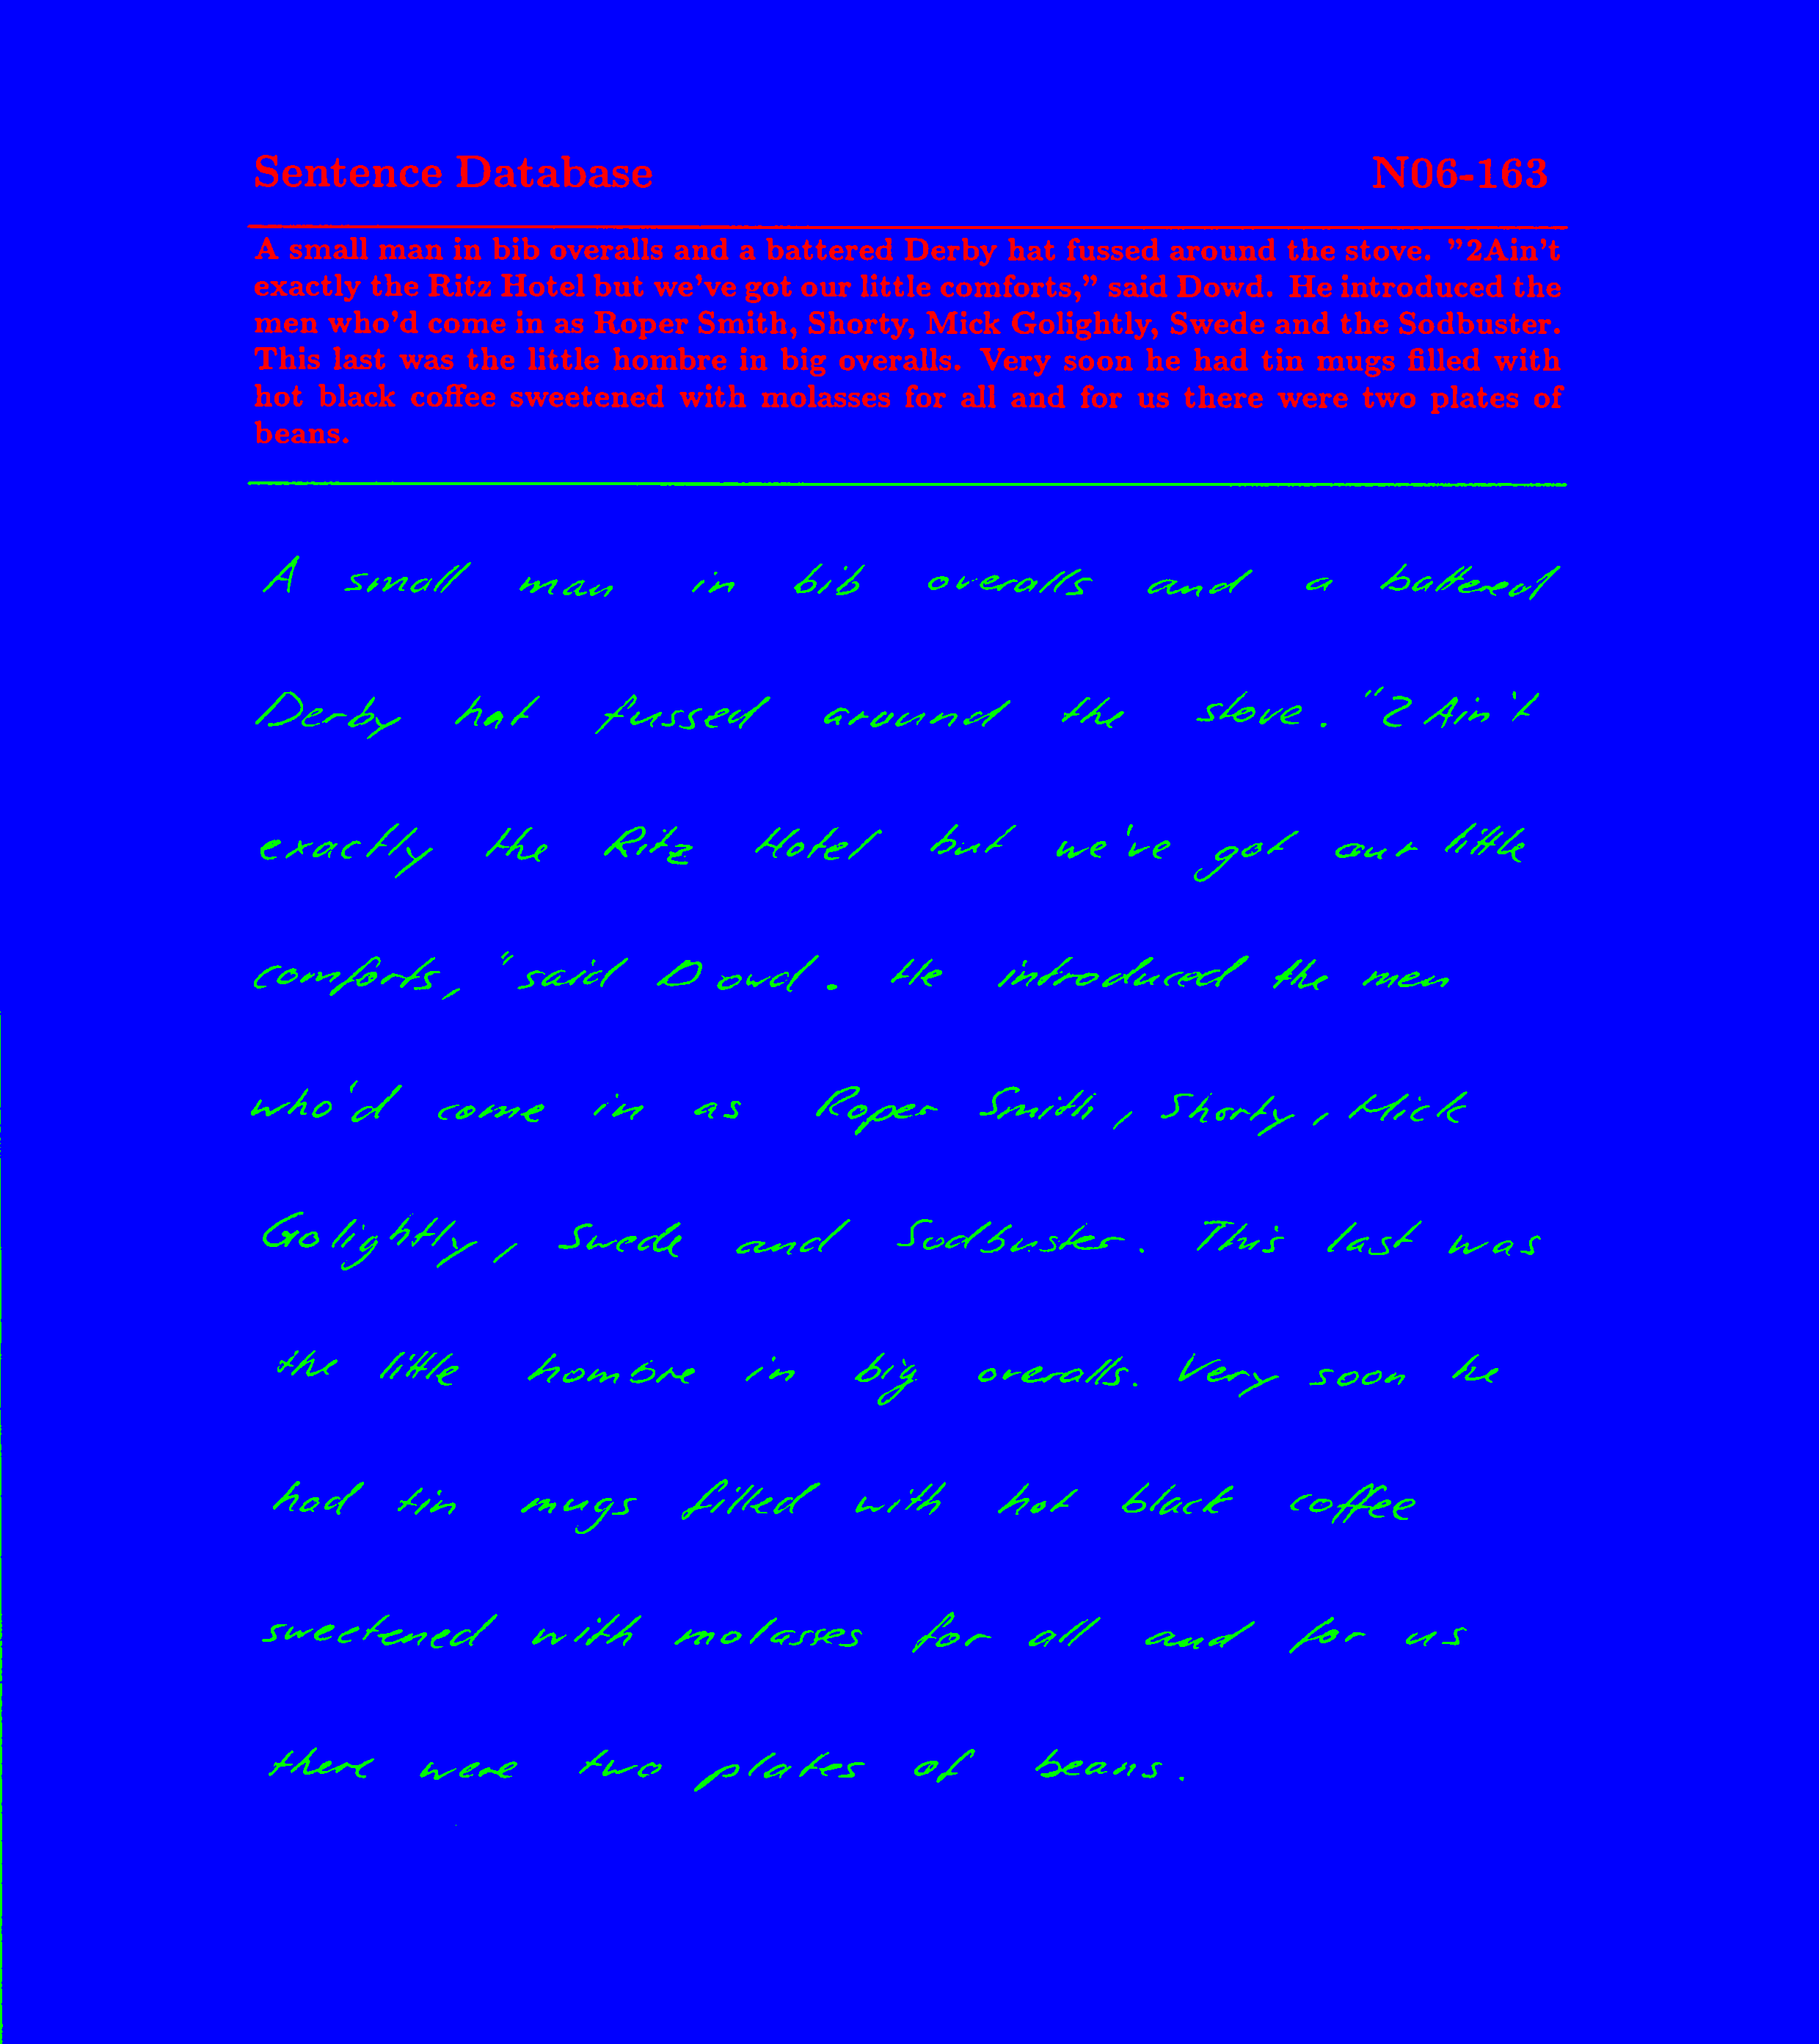 Sentence Database N06-163
A small man in bib overalls and a battered Derby hat fussed around the stove. "2Ain't
exactly the Ritz Hotel but we've got our little comforts," said Dowd. He introduced the
men who'd come in as Roper Smith, Shorty, Mick Golightly, Swede and the Sodbuster.
This last was the little hombre in big overalls. Very soon he had tin mugs filled with
hot black coffee sweetened with molasses for all and for us there were two plates of
beans.
A small man in bib overalls and a battered
Derby hat fussed around the stove. "2 Ain't
exactly the Ritz Hotel but we've got our little
comforts," said Dowd. He introduced the men
who'd come in as Roper Smith, Shorty, Mick
Golightly, Swede and Sodbuster. This last was
the little hombre in big overalls. Very soon he
had tin mugs filled with hot black coffee
sweetened with molasses for all and for us
there were two plates of beans.